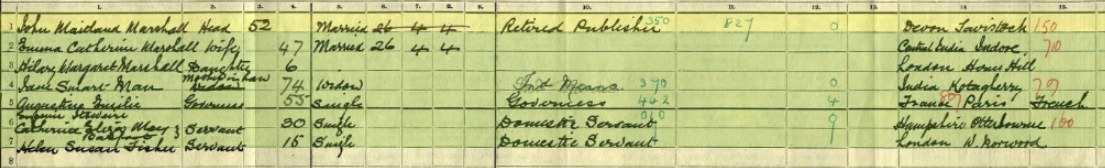 1. 2. 3. 4. 5. 6. 7. 8. 9. 10. 11. 12. 13. 14. 15.
1 John Maitland Marshall Head 52 Married 26 4 4 Retired Publisher 350 827 0 Devon Tavistock 150
2 Emma Catherine Marshall Wife 47 Married 26 4 4 Central India Indore 710
3 Hilary Margaret Marshall Daughter 6 London Herne Hill
4 Jane Smart Man Mother in law 74 Widow Ind Means 370 0 India Kotagherry 79
5 Governess 55 Single Governess 442 4 France Paris French
6 Catherine May Servant 30 Single Domestic Servant 010 9 Hampshire Otterbourne 160
7 Helen Susan Fisher Servant 15 Single Domestic Servant London W. Norwood
8